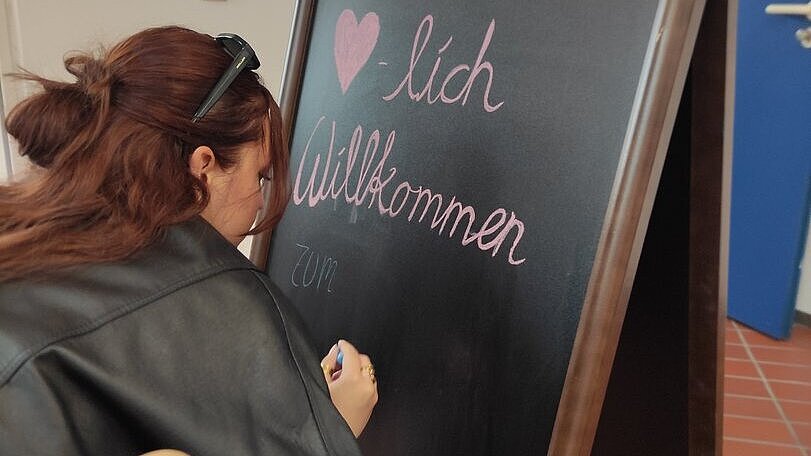 ♥-lich
Willkommen
zum